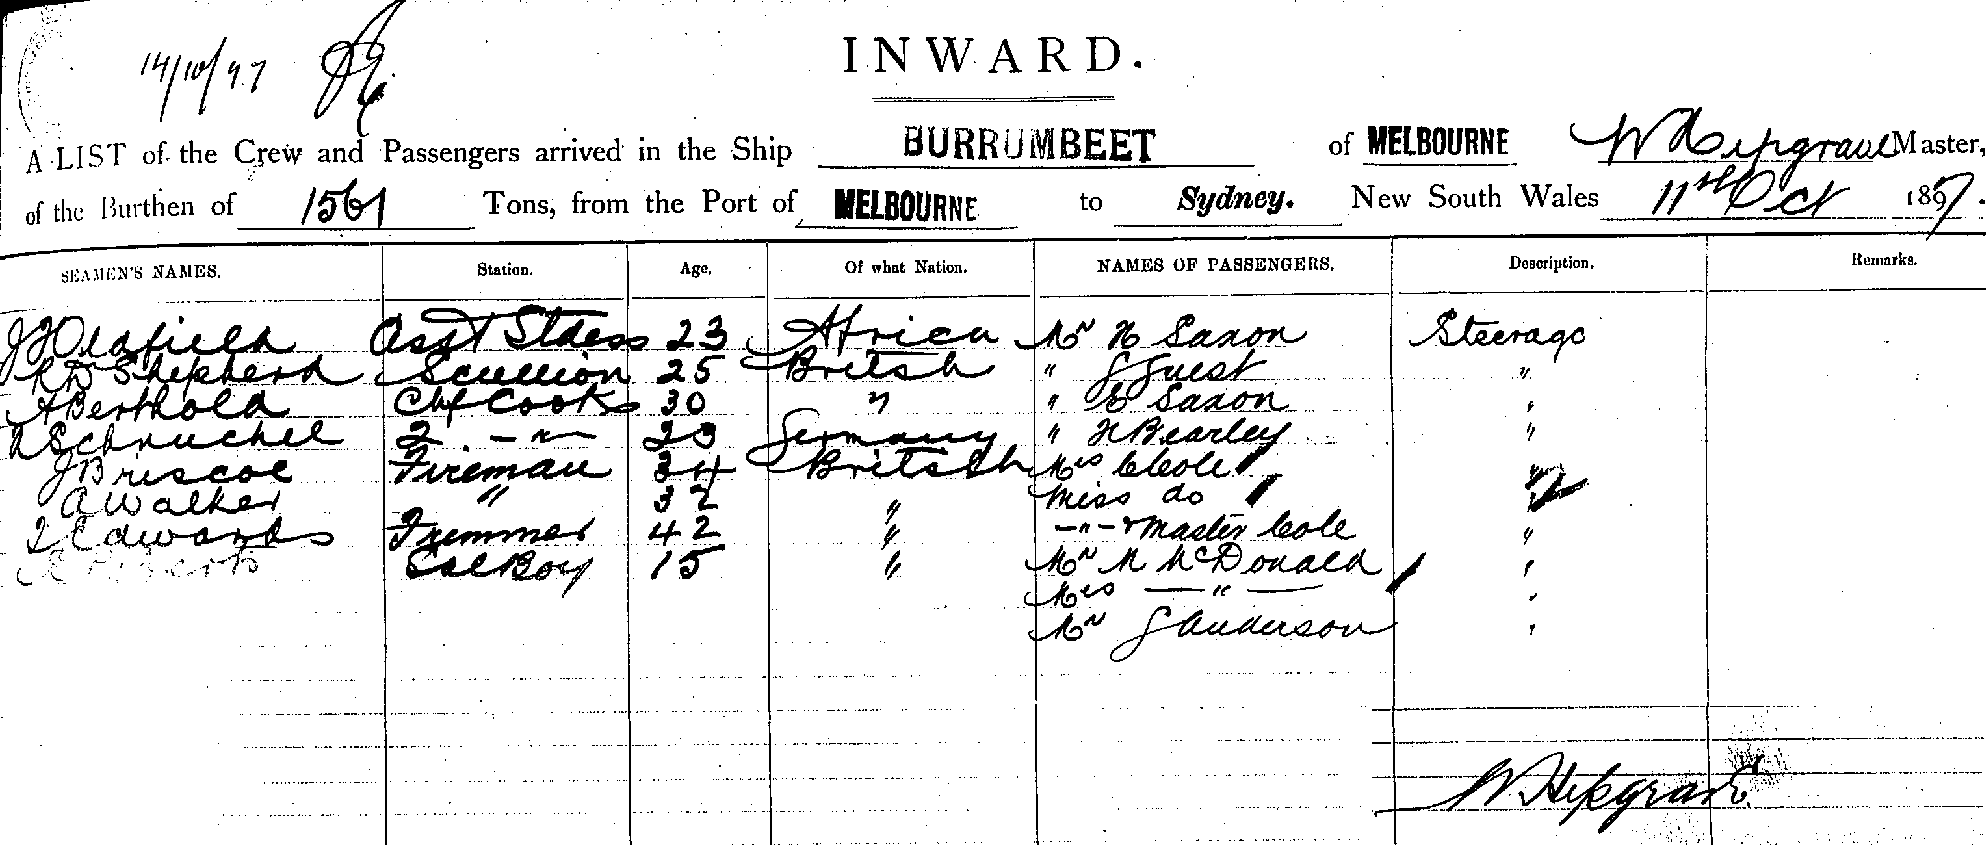 14/10/97
INWARD.
A LIST of the Crew and Passengers arrived in the Ship BURRUMBEET of MELBOURNE W Hipgrave Master,
of the Burthen of 1561 Tons, from the Port of MELBOURNE to Sydney. New South Wales 11th Oct 1897.
SEAMEN'S NAMES. Station. Age. Of what Nation. NAMES OF PASSENGERS. Description. Remarks.
J Oldfield Asst Stdess 23 Africa Mr H Saxon Steerage
R D Shepherd Scullion 25 British " J Guest "
A Berthold Chf Cook 30 " " E Saxon "
2 - " - Germany " H Bearley "
J Briscoe Fireman 34 British Mrs Cole "
A Walker " 32 " Miss do "
Edwards Trimmer 42 " - " - & Master Cole "
Boy 15 " Mr M McDonald "
Mrs - " - "
Mr J Anderson "
W Hipgrave